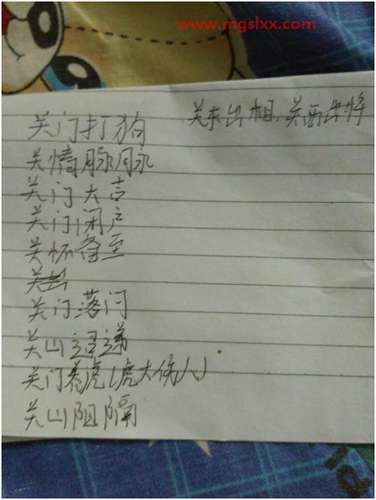 www.mgslxx.com
关东出相,关西出将
关门打狗
关情脉脉
关门大吉
关门闭户
关怀备至
关门落闩
关山迢递
关门养虎(虎大伤人)
关山阻隔